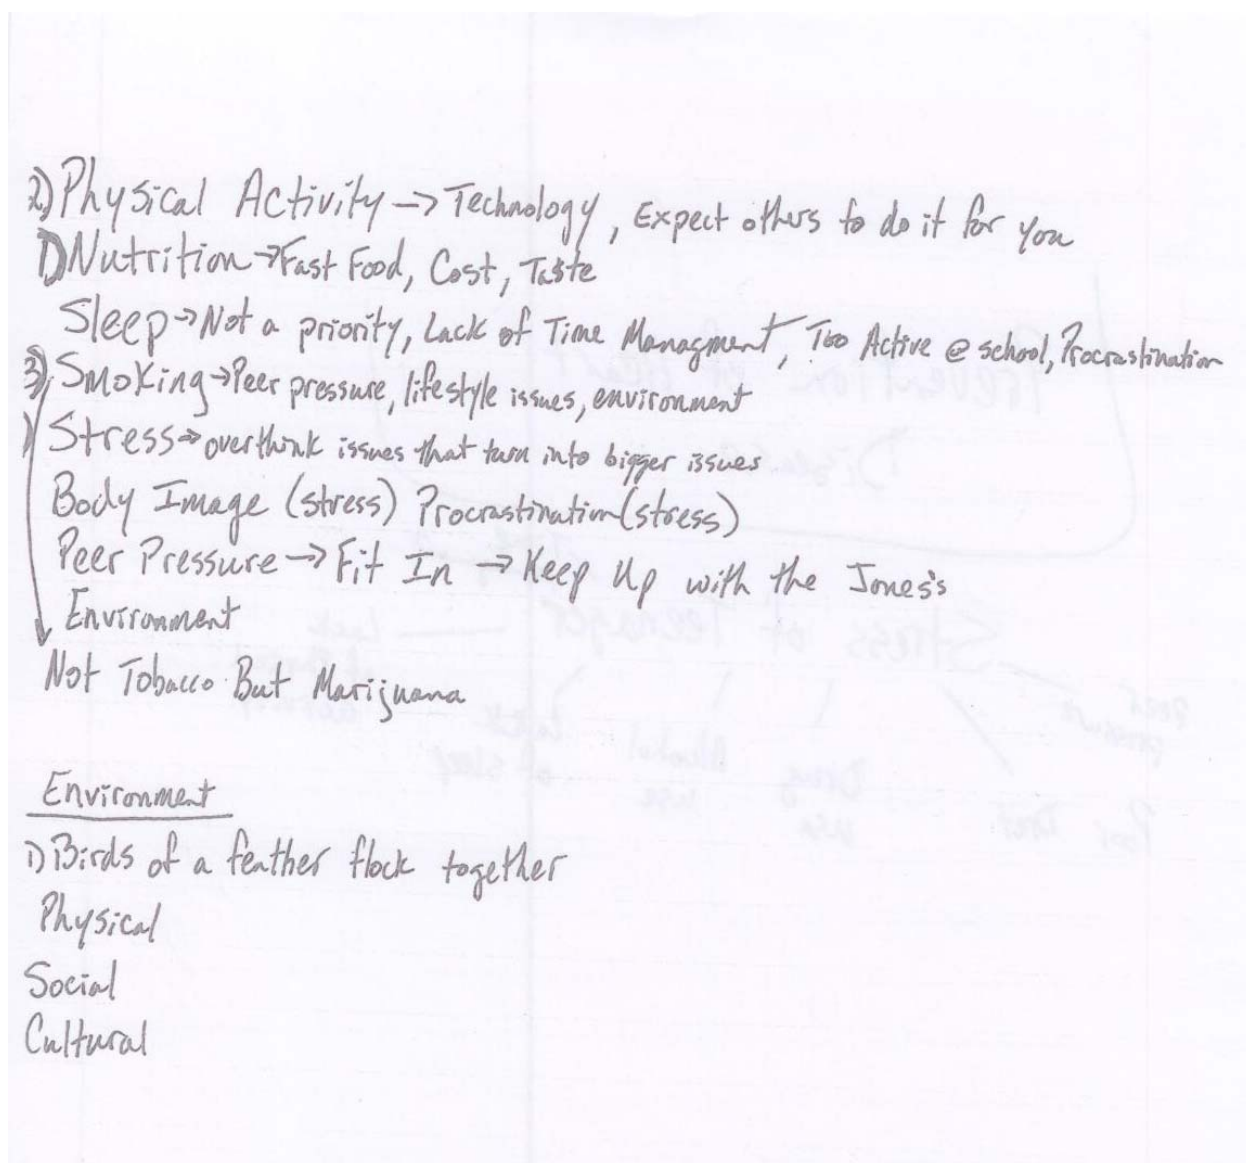 2) Physical Activity → Technology, Expect others to do it for you
1) Nutrition → Fast Food, Cost, Taste
Sleep → Not a priority, Lack of Time Managment, Too Active @ school, Procrastination
3) Smoking → Peer pressure, lifestyle issues, environment
1) Stress → overthink issues that turn into bigger issues
Body Image (stress) Procrastination (stress)
Peer Pressure → Fit In → Keep Up with the Jones's
Environment
Not Tobacco But Marijuana
Environment
1) Birds of a feather flock together
Physical
Social
Cultural
Prevention of Heart
Disease
Stress of Teenager
Lack
peer
pressure
Poor Diet
Drug
use
Alcohol
use
Lack
of sleep